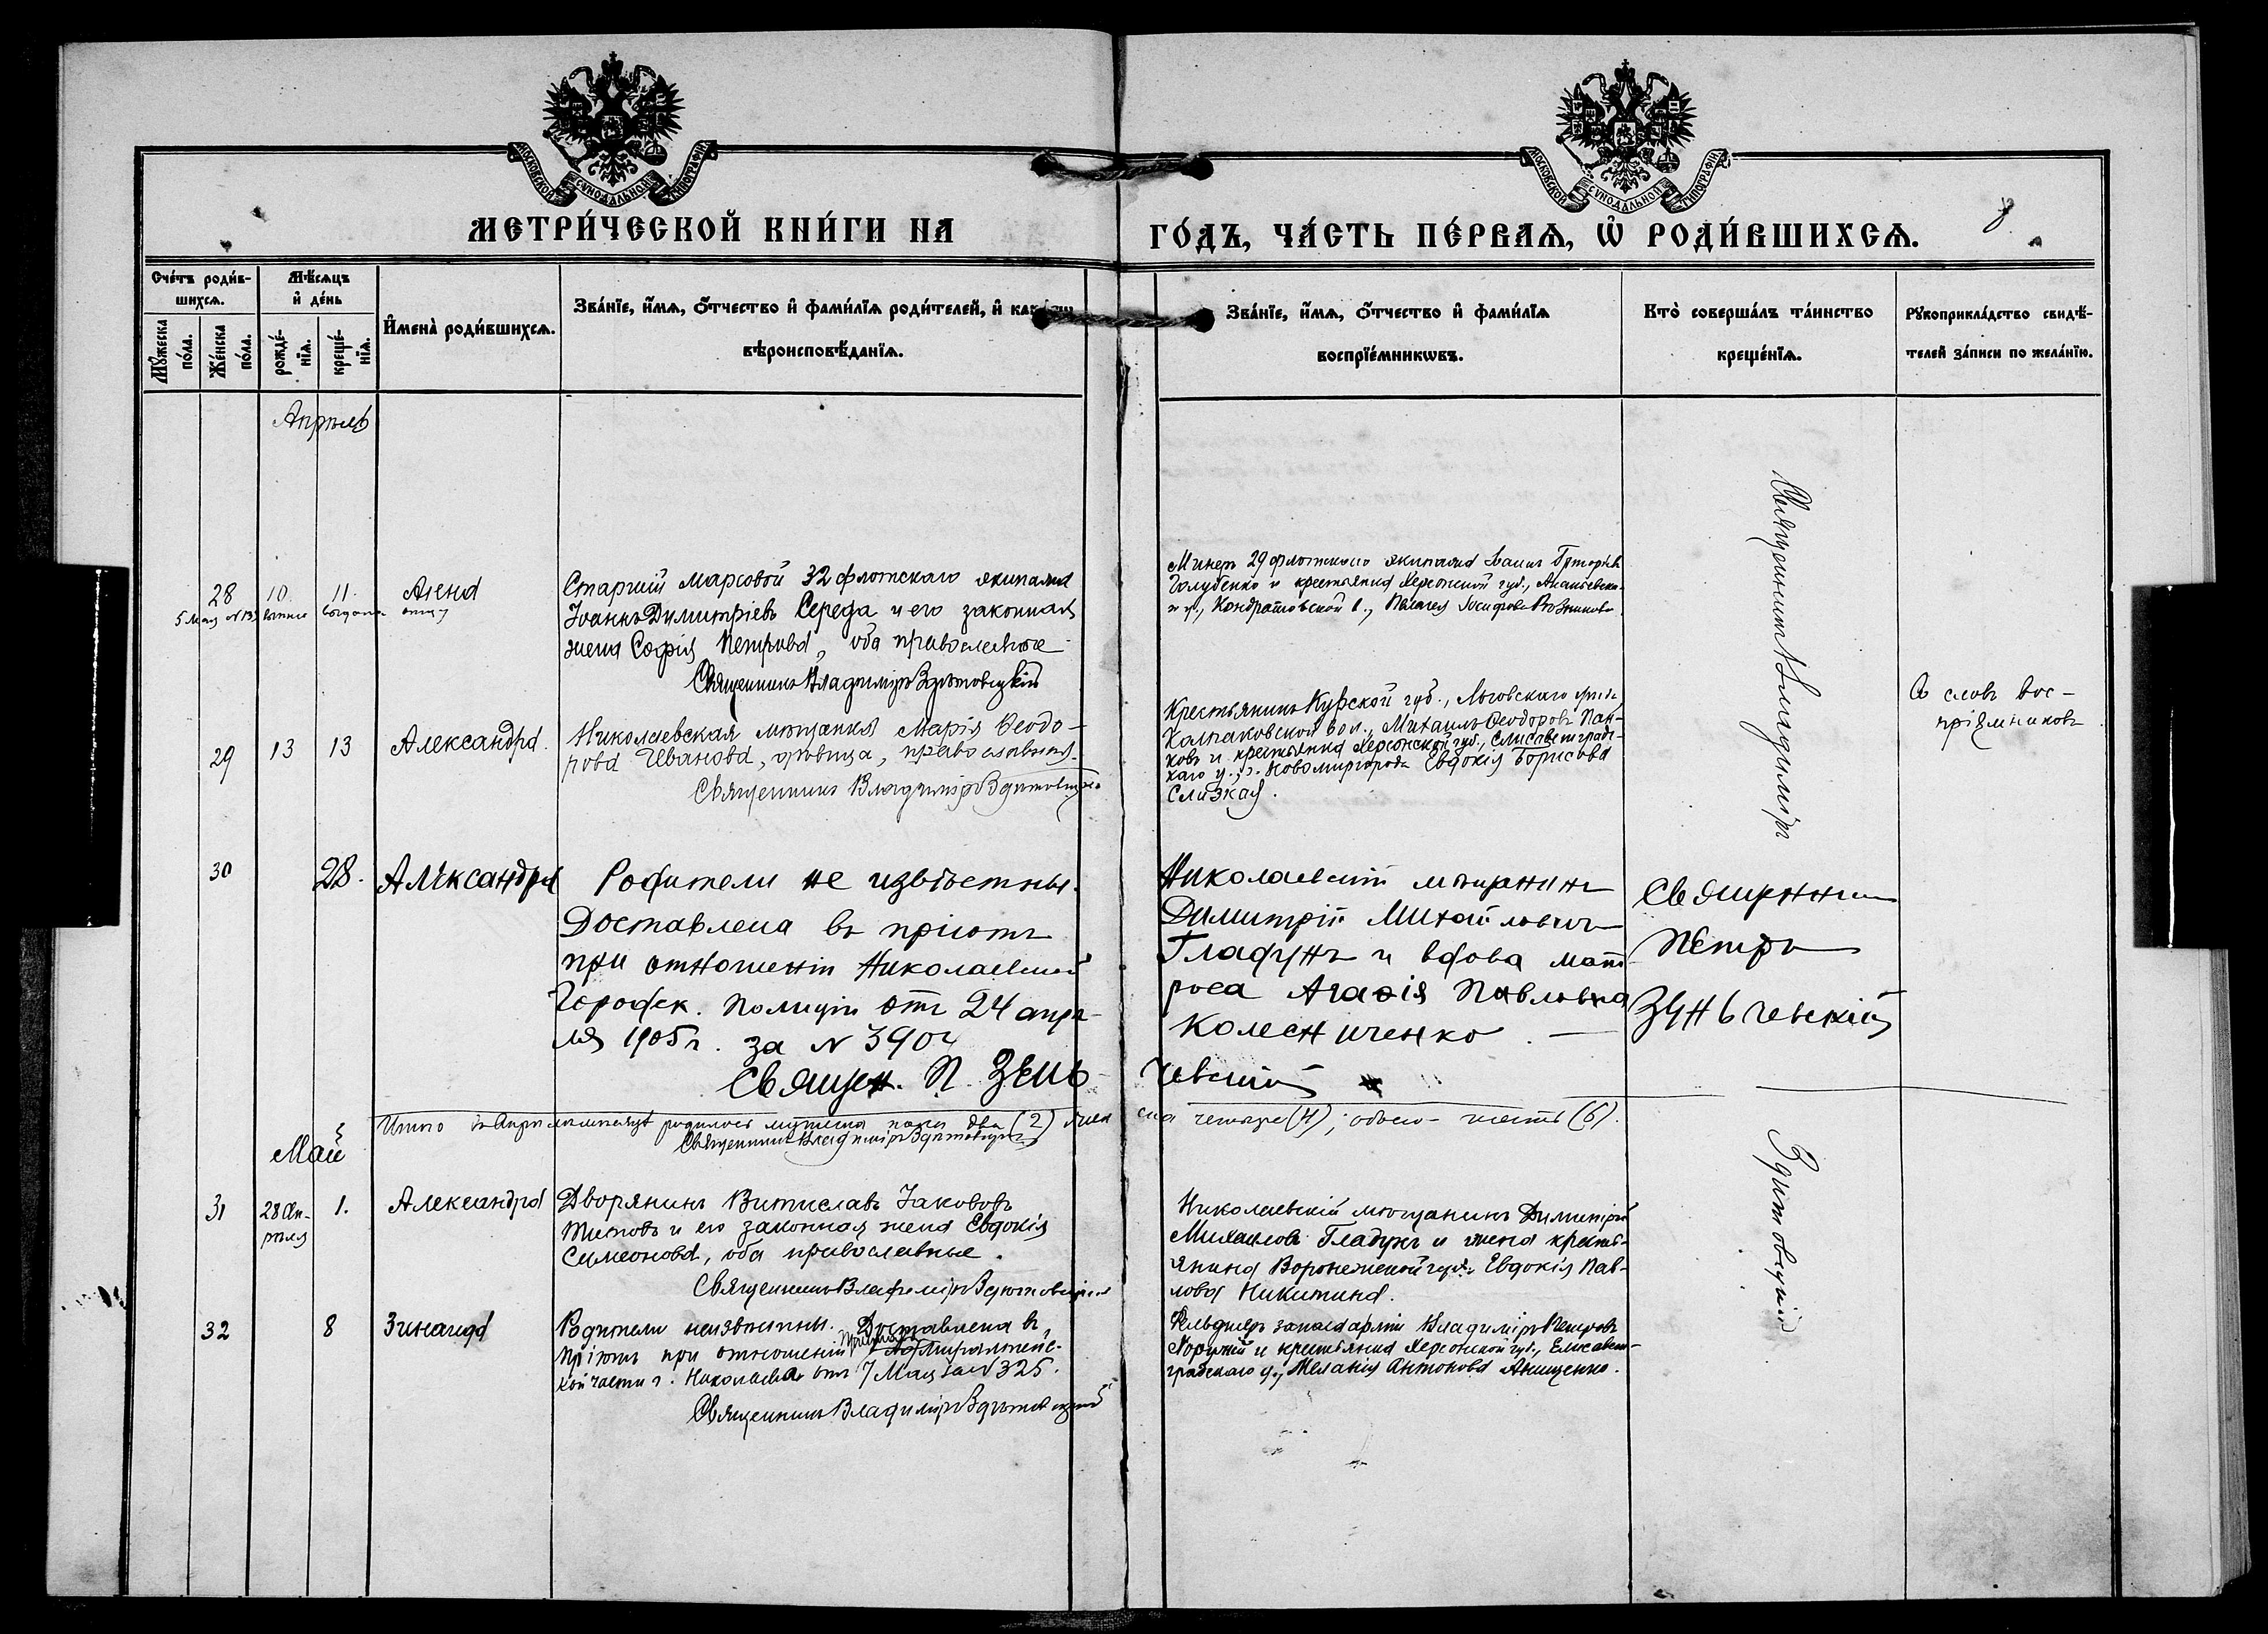 МОСКОВСКОЙ СѴНОДАЛЬНОЙ ТИПОГРАФІИ
МОСКОВСКОЙ СѴНОДАЛЬНОЙ ТИПОГРАФІИ
МЕТРИ́ЧЕСКОЙ КНИ́ГИ НА
ГО́ДЪ, ЧА́СТЬ ПЕ́РВАѦ, Ѡ҆ РОДИ́ВШИХСѦ.
8
Сче́тъ роди́в-
шихсѧ.
Мꙋжеска
по́ла.
Же́нска
по́ла.
Мѣ́сѧцъ
и҆ де́нь
рожде́-
нїѧ.
креще́-
нїѧ.
И҆мена̀ роди́вшихсѧ.
Зва́нїе, и҆́мѧ, ѻ҆́тчество и҆ фами́лїѧ роди́телей, и҆
вѣроисповѣ́данїѧ.
Зва́нїе, и҆́мѧ, ѻ҆́тчество и҆ фами́лїѧ
воспрїе́мникѡвъ.
Кто̀ соверша́лъ та́инство
креще́нїѧ.
Рꙋкоприкла́дство свидѣ́-
телей за́писи по жела́нїю.
Апрѣль
28
10.
11.
5 Мая №
выдана
отцу
Старшій марсовой 32 флотскаго экипажа
Іоаннъ Димитріевъ Середа и его законная
жена Софія Петрова, оба православные
Священникъ Владиміръ
Минеръ 29 флотскаго экипажа Іоаннъ
Голубенко и крестьянка Херсонской губ., Ананьевска-
го у., Кондратовской в., Пелагея Іосифова
29
13
13
Александра.
Николаевская мѣщанка Марія Ѳеодо-
рова Иванова, дѣвица, православная.
Священникъ Владиміръ
Крестьянинъ Курской губ., Льговскаго уѣзда
Колпаковской вол., Михаилъ Ѳеодоровъ Пан-
ковъ и крестьянка Херсонской губ., Елисаветград-
скаго у., г. Новомиргорода Евдокія Борисова
Слизкая.
Со словъ вос-
пріемниковъ
Священникъ Владиміръ
30
28.
Александра
Родители не извѣстны.
Доставлена въ пріютъ
при отношеніи Николаевской
Городск. Полиціи отъ 24 апрѣ-
ля 1905 г. за № 3904
Священ. П. Зень-
чевскій
Николаевскій мѣщанинъ
Димитрій Михайловичъ
Гладунъ и вдова мат-
роса Агаѳія Павловна
Колесниченко. —
Священникъ
Петръ
Зеньчевскій
Итого въ Апрѣлѣ мѣсяцѣ родилось мужеска пола два (2) жен
ска четыре (4), обоего - шесть (6).
Священникъ Владиміръ
Май
31
28 Ап-
рѣля
1.
Александра
Дворянинъ Витиславъ Іаковов
и его законная жена Евдокія
Симеонова, оба православные.
Священникъ Владиміръ
Николаевскій мѣщанинъ Димитрій
Михаиловъ Гладунъ и жена кресть-
янина Воронежской губ. Евдокія Пав-
лова Никитина.
32
8
Зинаида
Родители неизвѣстны. Доставлена въ
пріютъ при отношеніи Адмиралтейс-
кой части г. Николаева отъ 7 Мая за № 325.
Священникъ Владиміръ
Фельдшеръ запаса арміи Владиміръ Петровъ
и крестьянка Херсонской губ., Елисавет-
градскаго у., Меланія Антонова Анищенко.